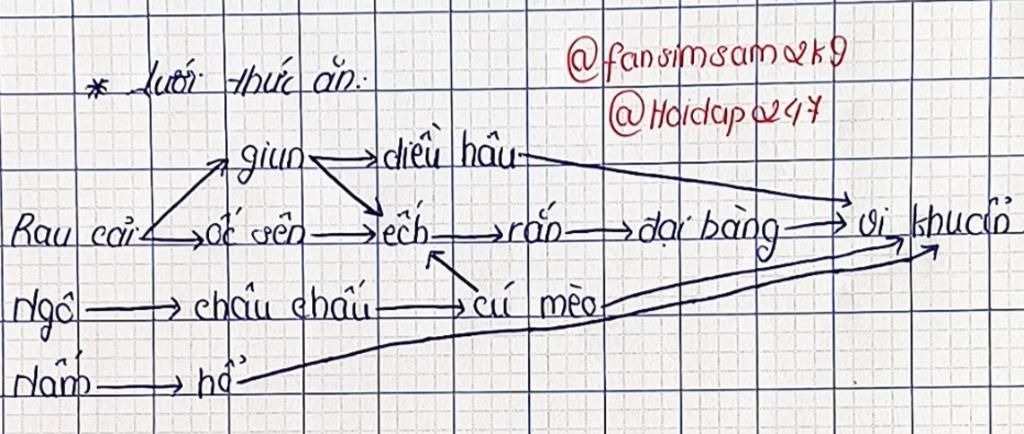 @fansimsam2k9
* Lưới thức ăn:
@Hoidap247
giun → diều hâu
Rau cải → ốc sên → ếch → rắn → đại bàng → vi khuẩn
Ngô → châu chấu → cú mèo
Nấm → hổ